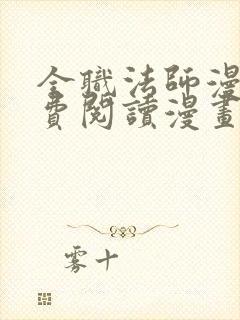 全職法師漫
費閱讀漫畫
雾十